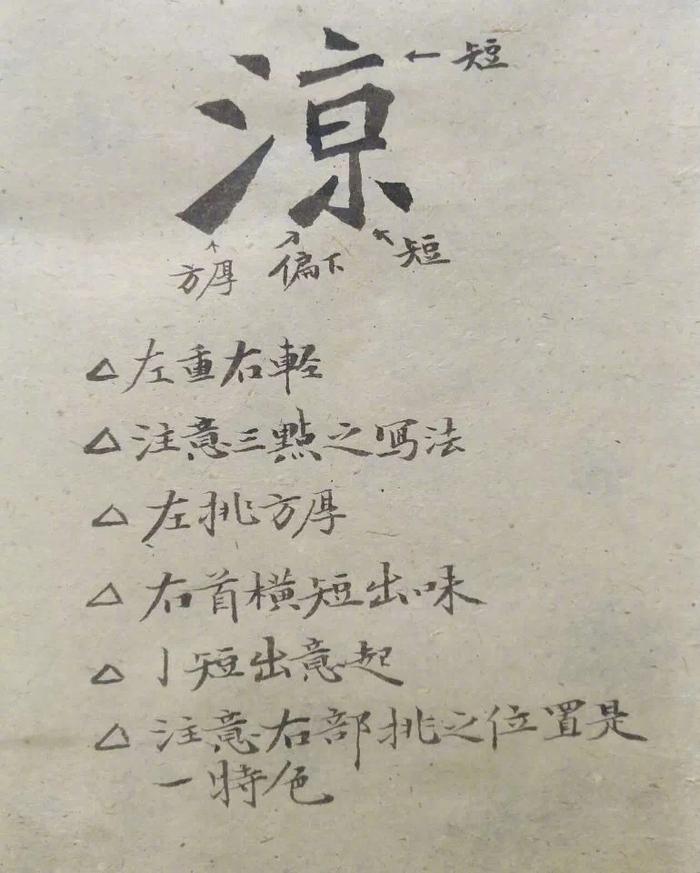 涼
← 短
方厚 偏下 短
△左重右軽
△注意三點之写法
△左挑方厚
△右首横短出味
△亅短出意起
△注意右部挑之位置是
一特色